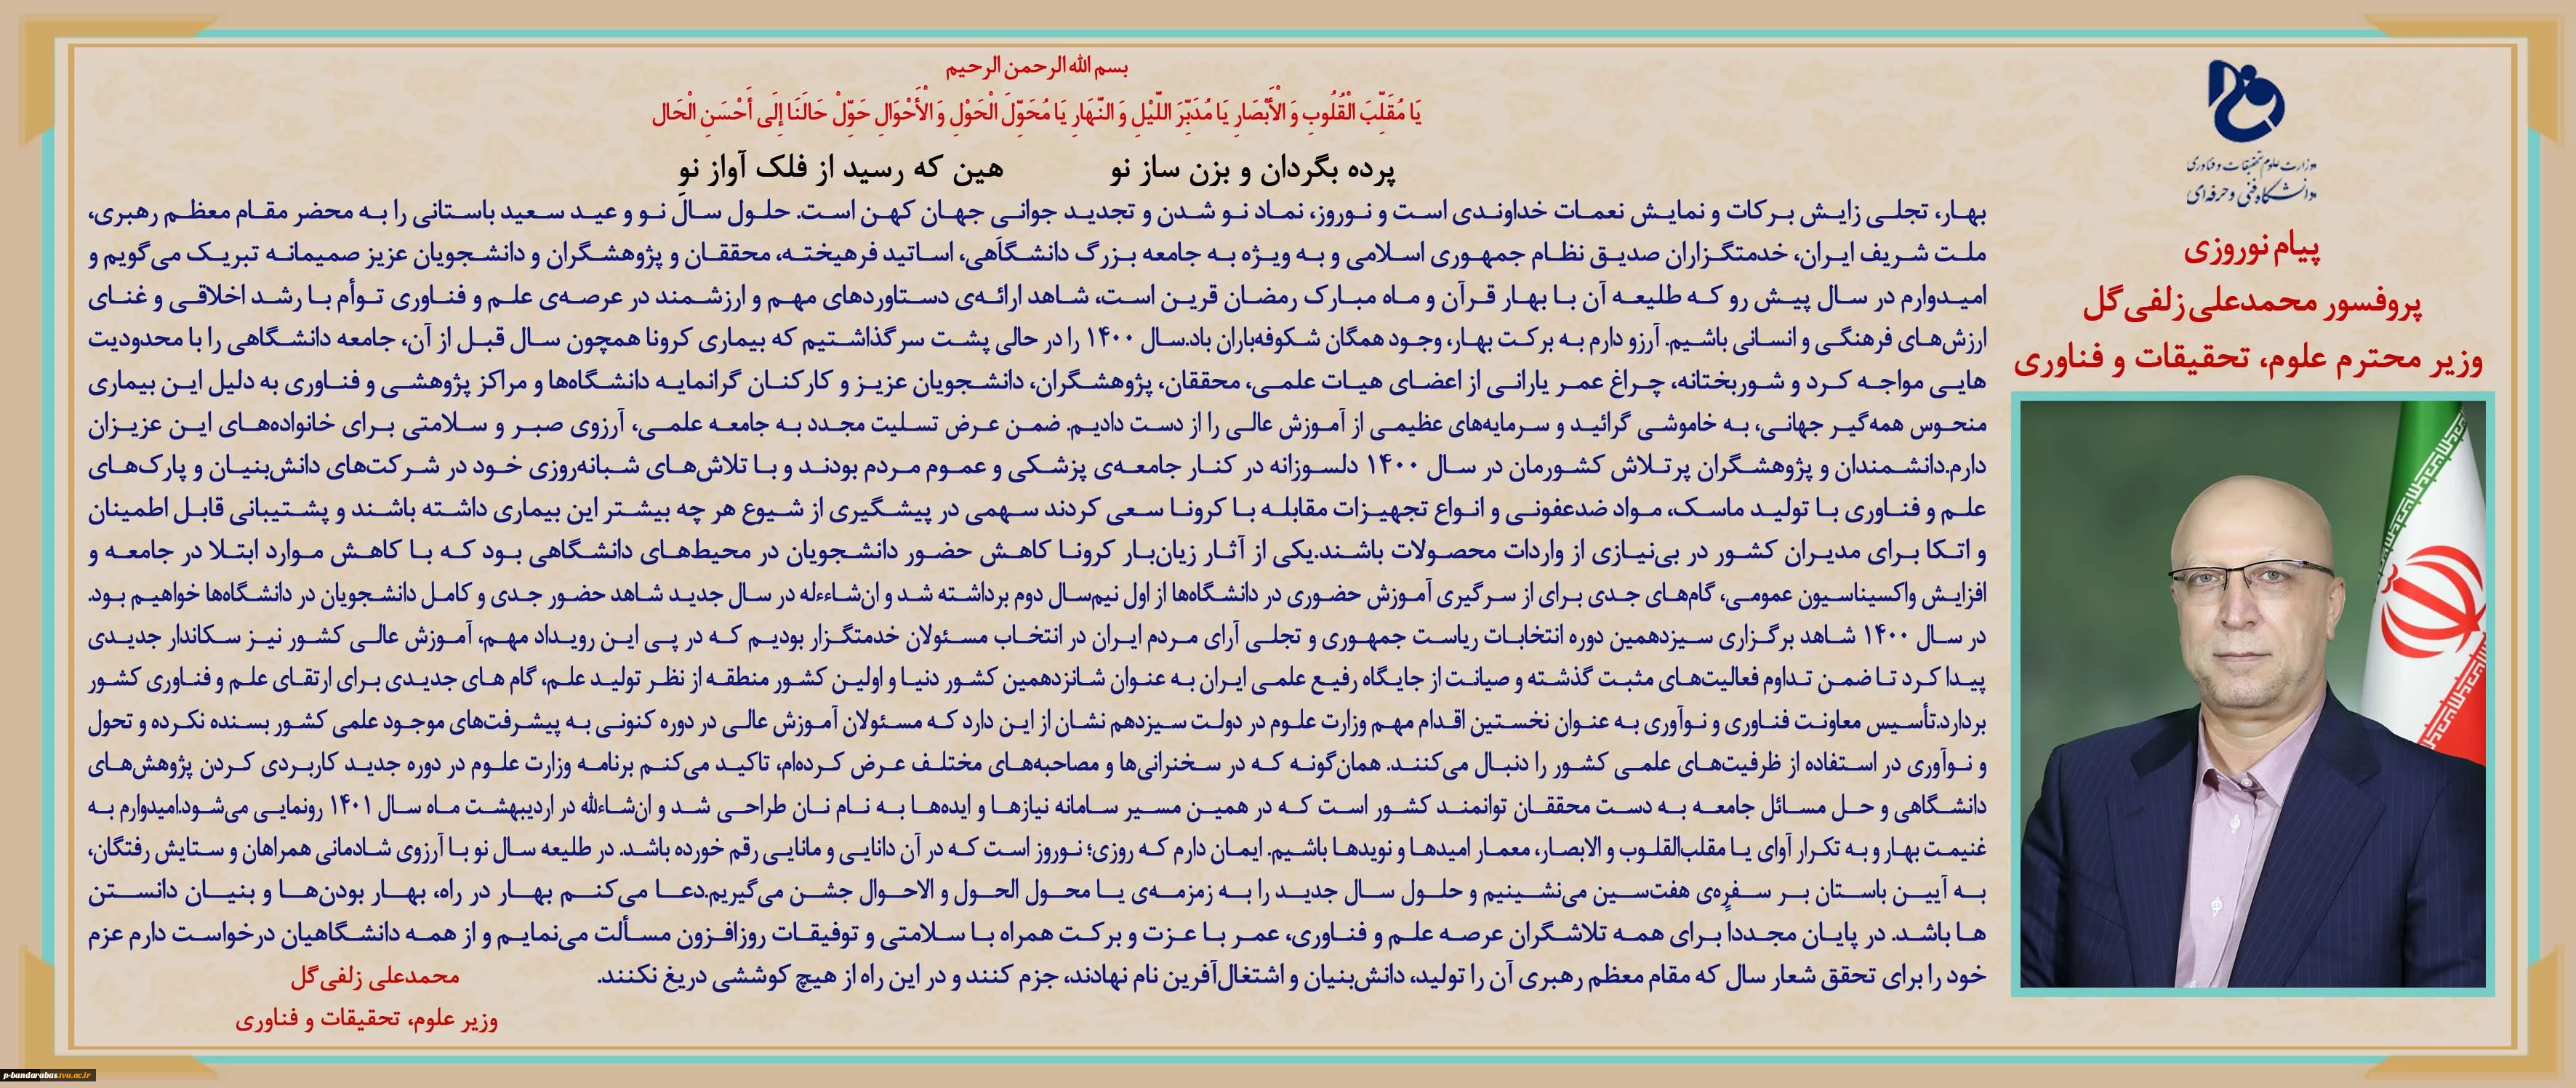 بسم الله الرحمن الرحیم
یَا مُقَلِّبَ الْقُلُوبِ وَ الْأَبْصَارِ یَا مُدَبِّرَ اللَّیْلِ وَ النَّهَارِ یَا مُحَوِّلَ الْحَوْلِ وَ الْأَحْوَالِ حَوِّلْ حَالَنَا إِلَی أَحْسَنِ الْحَال
پرده بگردان و بزن ساز نو هین که رسید از فلک آواز نو
وزارت علوم تحقیقات و فناوری
دانشگاه فنی و حرفه‌ای
پیام نوروزی
پروفسور محمدعلی زلفی گل
وزیر محترم علوم، تحقیقات و فناوری
بهار، تجلی زایش برکات و نمایش نعمات خداوندی است و نوروز، نماد نو شدن و تجدید جوانی جهان کهن است. حلول سال نو و عید سعید باستانی را به محضر مقام معظم رهبری،
ملت شریف ایران، خدمتگزاران صدیق نظام جمهوری اسلامی و به ویژه به جامعه بزرگ دانشگاهی، اساتید فرهیخته، محققان و پژوهشگران و دانشجویان عزیز صمیمانه تبریک می‌گویم و
امیدوارم در سال پیش رو که طلیعه آن با بهار قرآن و ماه مبارک رمضان قرین است، شاهد ارائه‌ی دستاوردهای مهم و ارزشمند در عرصه‌ی علم و فناوری توأم با رشد اخلاقی و غنای
ارزش‌های فرهنگی و انسانی باشیم. آرزو دارم به برکت بهار، وجود همگان شکوفه‌باران باد.سال ۱۴۰۰ را در حالی پشت سر گذاشتیم که بیماری کرونا همچون سال قبل از آن، جامعه دانشگاهی را با محدودیت
هایی مواجه کرد و شوربختانه، چراغ عمر یارانی از اعضای هیات علمی، محققان، پژوهشگران، دانشجویان عزیز و کارکنان گرانمایه دانشگاه‌ها و مراکز پژوهشی و فناوری به دلیل این بیماری
منحوس همه‌گیر جهانی، به خاموشی گرائید و سرمایه‌های عظیمی از آموزش عالی را از دست دادیم. ضمن عرض تسلیت مجدد به جامعه علمی، آرزوی صبر و سلامتی برای خانواده‌های این عزیزان
دارم.دانشمندان و پژوهشگران پرتلاش کشورمان در سال ۱۴۰۰ دلسوزانه در کنار جامعه‌ی پزشکی و عموم مردم بودند و با تلاش‌های شبانه‌روزی خود در شرکت‌های دانش‌بنیان و پارک‌های
علم و فناوری با تولید ماسک، مواد ضدعفونی و انواع تجهیزات مقابله با کرونا سعی کردند سهمی در پیشگیری از شیوع هر چه بیشتر این بیماری داشته باشند و پشتیبانی قابل اطمینان
و اتکا برای مدیران کشور در بی‌نیازی از واردات محصولات باشند.یکی از آثار زیان‌بار کرونا کاهش حضور دانشجویان در محیط‌های دانشگاهی بود که با کاهش موارد ابتلا در جامعه و
افزایش واکسیناسیون عمومی، گام‌های جدی برای از سرگیری آموزش حضوری در دانشگاه‌ها از اول نیم‌سال دوم برداشته شد و ان‌شاءءله در سال جدید شاهد حضور جدی و کامل دانشجویان در دانشگاه‌ها خواهیم بود.
در سال ۱۴۰۰ شاهد برگزاری سیزدهمین دوره انتخابات ریاست جمهوری و تجلی آرای مردم ایران در انتخاب مسئولان خدمتگزار بودیم که در پی این رویداد مهم، آموزش عالی کشور نیز سکاندار جدیدی
پیدا کرد تا ضمن تداوم فعالیت‌های مثبت گذشته و صیانت از جایگاه رفیع علمی ایران به عنوان شانزدهمین کشور دنیا و اولین کشور منطقه از نظر تولید علم، گام های جدیدی برای ارتقای علم و فناوری کشور
بردارد.تأسیس معاونت فناوری و نوآوری به عنوان نخستین اقدام مهم وزارت علوم در دولت سیزدهم نشان از این دارد که مسئولان آموزش عالی در دوره کنونی به پیشرفت‌های موجود علمی کشور بسنده نکرده و تحول
و نوآوری در استفاده از ظرفیت‌های علمی کشور را دنبال می‌کنند. همان‌گونه که در سخنرانی‌ها و مصاحبه‌های مختلف عرض کرده‌ام، تاکید می‌کنم برنامه وزارت علوم در دوره جدید کاربردی کردن پژوهش‌های
دانشگاهی و حل مسائل جامعه به دست محققان توانمند کشور است که در همین مسیر سامانه نیازها و ایده‌ها به نام نان طراحی شد و ان‌شاءلله در اردیبهشت ماه سال ۱۴۰۱ رونمایی می‌شود.امیدوارم به
غنیمت بهار و به تکرار آوای یا مقلب‌القلوب و الابصار، معمار امیدها و نویدها باشیم. ایمان دارم که روزی؛ نوروز است که در آن دانایی و مانایی رقم خورده باشد. در طلیعه سال نو با آرزوی شادمانی همراهان و ستایش رفتگان،
به آیین باستان بر سفره‌ی هفت‌سین می‌نشینیم و حلول سال جدید را به زمزمه‌ی یا محول الحول و الاحوال جشن می‌گیریم.دعا می‌کنم بهار در راه، بهار بودن‌ها و بنیان دانستن
ها باشد. در پایان مجددا برای همه تلاشگران عرصه علم و فناوری، عمر با عزت و برکت همراه با سلامتی و توفیقات روزافزون مسألت می‌نمایم و از همه دانشگاهیان درخواست دارم عزم
خود را برای تحقق شعار سال که مقام معظم رهبری آن را تولید، دانش‌بنیان و اشتغال‌آفرین نام نهادند، جزم کنند و در این راه از هیچ کوششی دریغ نکنند.
محمدعلی زلفی گل
وزیر علوم، تحقیقات و فناوری
p-bandarabas.tvu.ac.ir